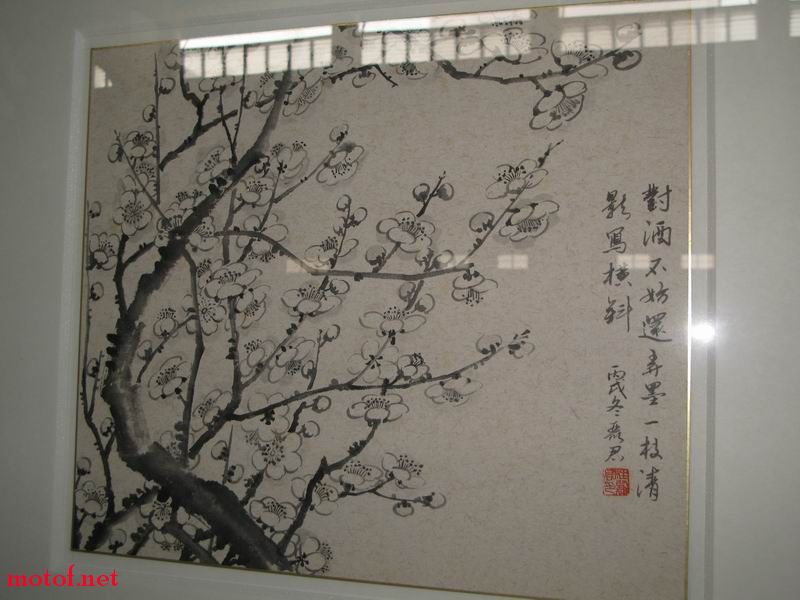 對酒不妨還弄墨一枝清
影寫橫斜
丙戌冬磊君
motof.net